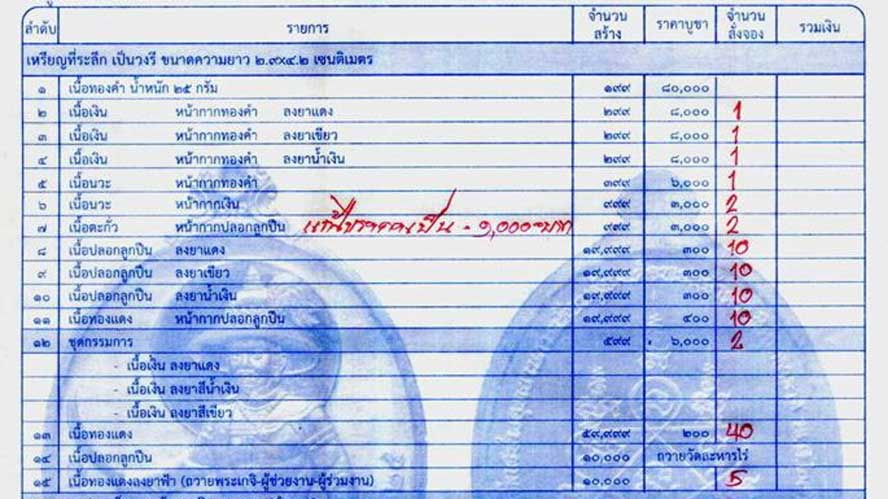 ลำดับ รายการ จำนวนสร้าง ราคาบูชา จำนวนสั่งจอง รวมเงิน
เหรียญที่ระลึก เป็นวงรี ขนาดความยาว ๒.๙x๔.๒ เซนติเมตร
๑ เนื้อทองคำ น้ำหนัก ๒๕ กรัม ๑๙๙ ๘๐,๐๐๐
๒ เนื้อเงิน หน้ากากทองคำ ลงยาแดง ๒๙๙ ๘,๐๐๐ 1
๓ เนื้อเงิน หน้ากากทองคำ ลงยาเขียว ๒๙๙ ๘,๐๐๐ 1
๔ เนื้อเงิน หน้ากากทองคำ ลงยาน้ำเงิน ๒๙๙ ๘,๐๐๐ 1
๕ เนื้อนวะ หน้ากากทองคำ ๓๙๙ ๖,๐๐๐ 1
๖ เนื้อนวะ หน้ากากเงิน ๙๙๙ ๓,๐๐๐ 2
๗ เนื้อตะกั่ว หน้ากากปลอกลูกปืน เป็น - ๑,๐๐๐บาท ๙๙๙ ๓,๐๐๐ 2
๘ เนื้อปลอกลูกปืน ลงยาแดง ๑๙,๙๙๙ ๓๐๐ 10
๙ เนื้อปลอกลูกปืน ลงยาเขียว ๑๙,๙๙๙ ๓๐๐ 10
๑๐ เนื้อปลอกลูกปืน ลงยาน้ำเงิน ๑๙,๙๙๙ ๓๐๐ 10
๑๑ เนื้อทองแดง หน้ากากปลอกลูกปืน ๑๙,๙๙๙ ๔๐๐ 10
๑๒ ชุดกรรมการ ๕๙๙ ๖,๐๐๐ 2
- เนื้อเงิน ลงยาแดง
- เนื้อเงิน ลงยาสีน้ำเงิน
- เนื้อเงิน ลงยาสีเขียว
๑๓ เนื้อทองแดง ๕๙,๙๙๙ ๒๐๐ 40
๑๔ เนื้อปลอกลูกปืน ๑๐,๐๐๐ ถวายวัดละหารไร่
๑๕ เนื้อทองแดงลงยาฟ้า (ถวายพระเกจิ-ผู้ช่วยงาน-ผู้ร่วมงาน) ๑๐,๐๐๐ 5